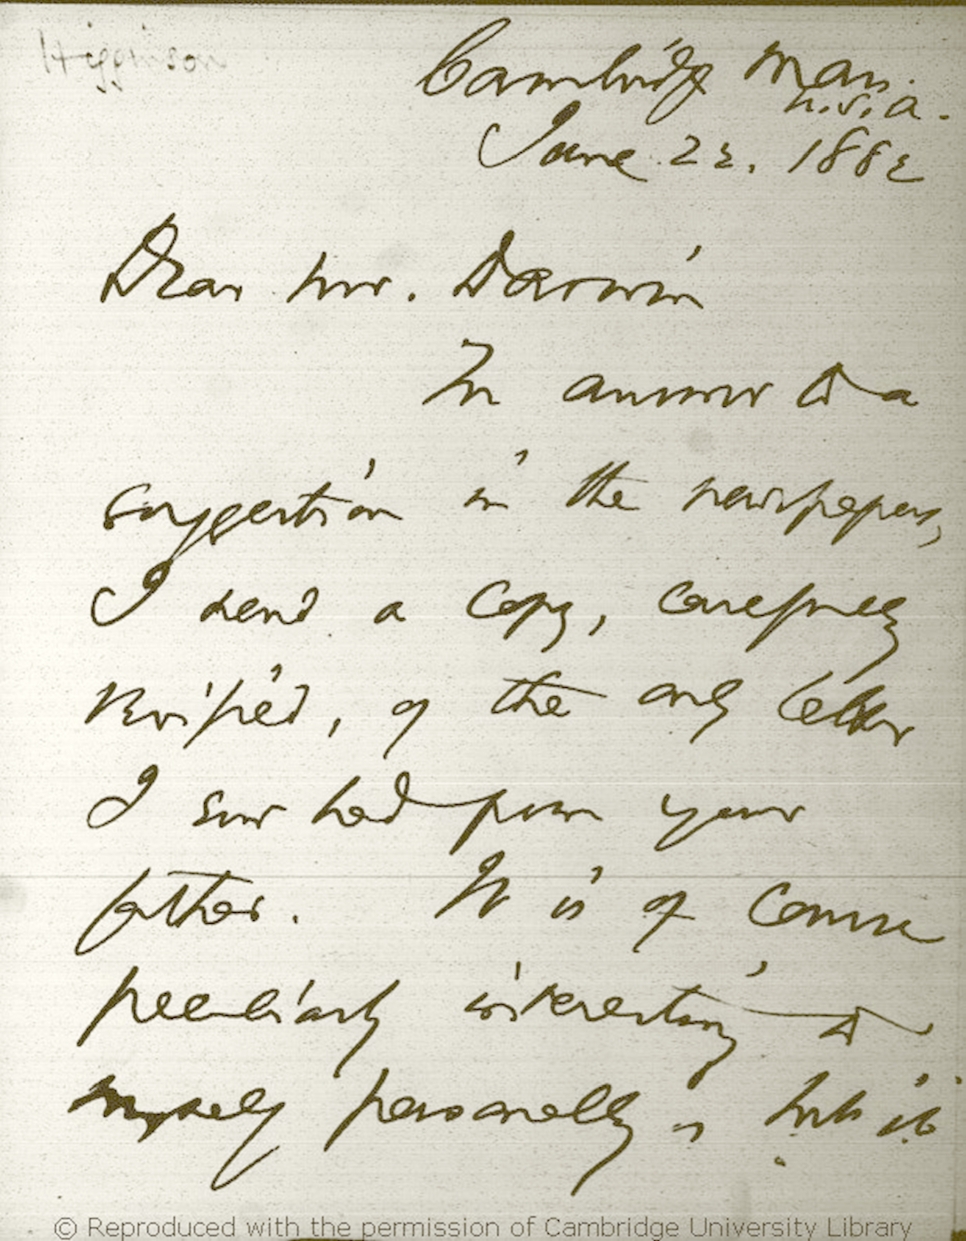 Higginson
Cambridge Mass.
U.S.A.
June 22. 1882
Dear Mr. Darwin
In answer to a
suggestion in the newspapers,
I send a copy, carefully
verified, of the only letter
I ever had from your
father. It is of course
peculiarly interesting to
myself personally, but it
© Reproduced with the permission of Cambridge University Library